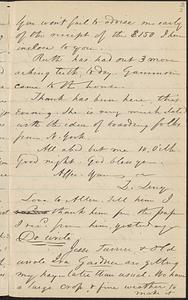 You wont fail to advise me early
of the receipt of the $150 I have
inclose to you.
Ruth has had out 3 more
aching teeth, to day. Gammon
came to the house.
Thank has been here this
Evening. She is very much elated
with the idea of boarding folks
from N. York
All abed but me. 10. Oclk
Good night. God bless you.
After Yours,
D. Lucy
Love to Allen. Tell him I
thank him for the paper
I rec'd from him, yesterday
Do write
Jesse Turner & Old
Uncle Ira Gardner are getting
my hay, later than usual. We have
a large crop & fine weather to
make it.